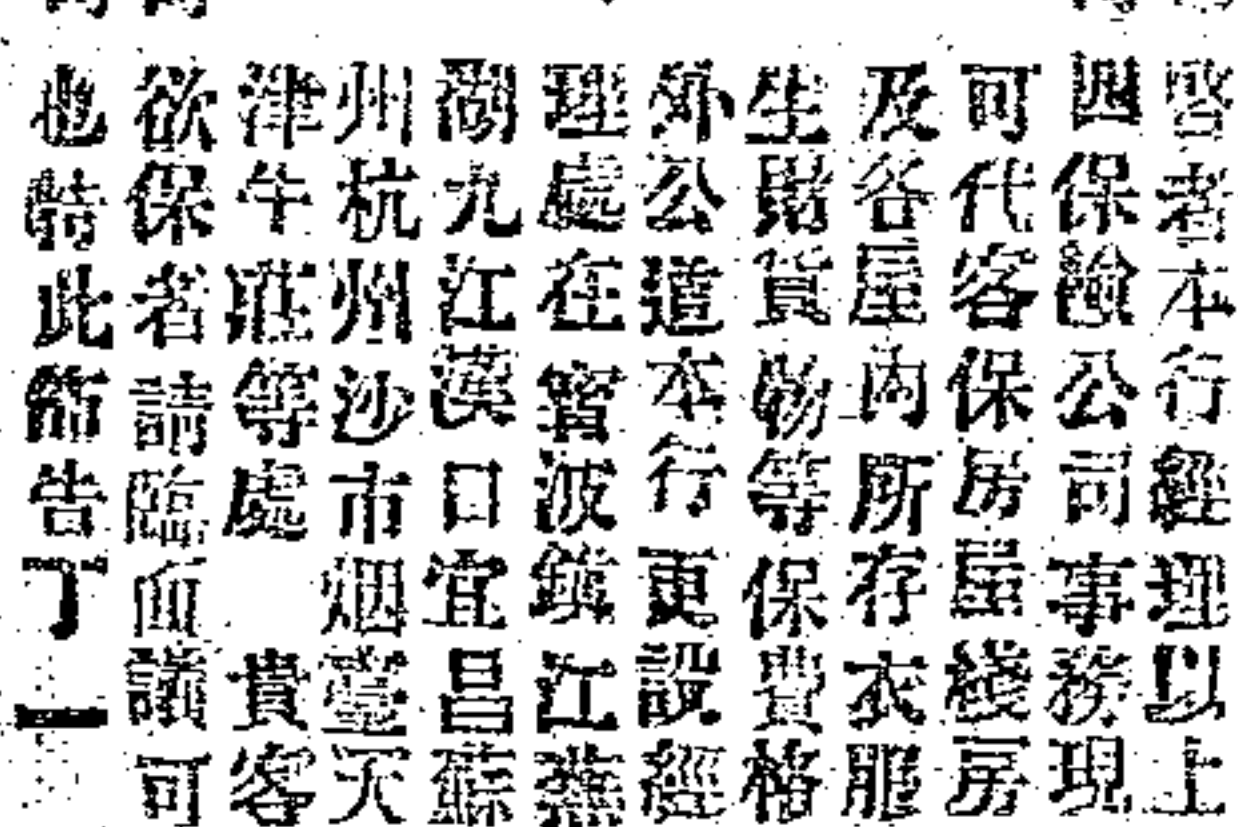 啓者本行經理以上
四保險公司事務現
可代客保房屋棧房
及各屋內所存衣服
生財貨物等保費格
外公道本行更設經
理處在甯波鎮江蕪
湖九江漢口宜昌蘇
州杭州沙市烟臺天
津牛莊等處 貴客
欲保者請臨面議可
也特此佈告 丁一